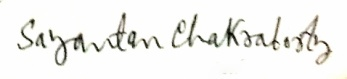 Sayantan Chakraborty